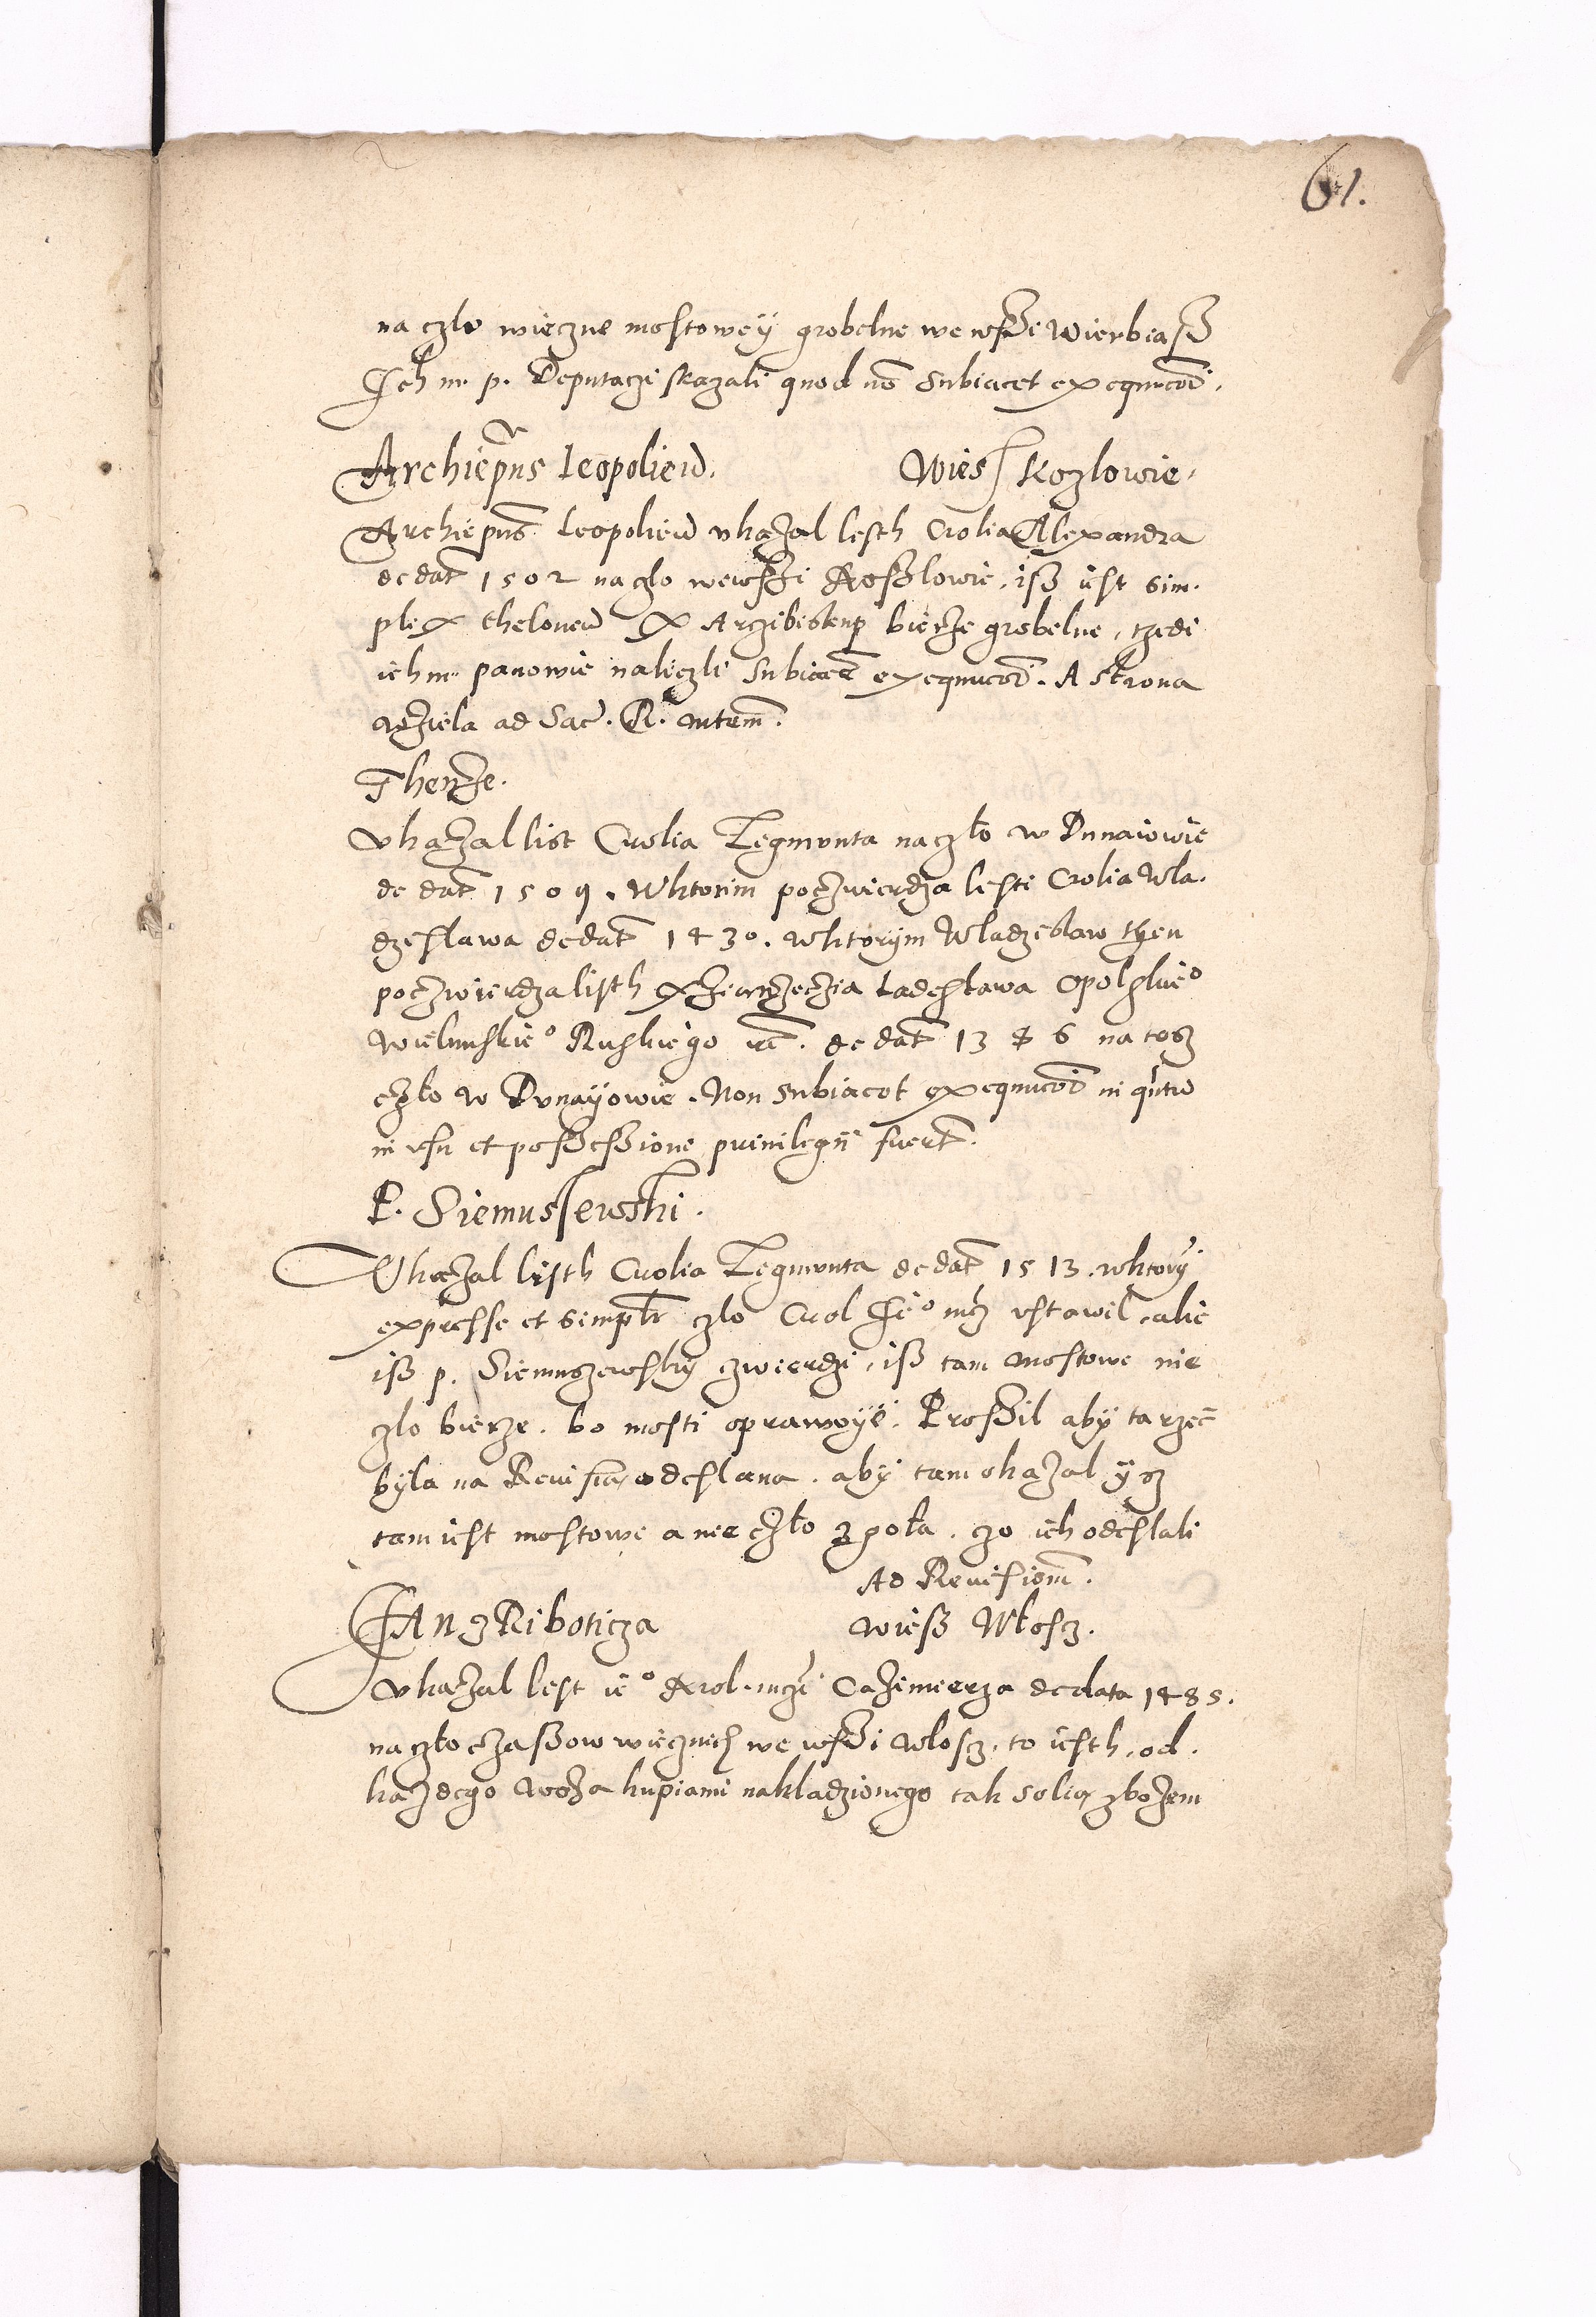 61.
na czlo wieczne mostowe y grobelne we wsßi Wierbiasß
Jch m. p. Deputaczi skazali quod nō Subiacet exequucōi.
Archiepūs Leopolień. Wies Kozlowie.
Archiepūs Leopolień vkazal listh Crolia Alexandra
de dat 1502 na czlo we wsßi Kosßlowie, isß iest sim.
plex theloneū X Arzibiskup bierze grobelne, tzedi
ich m. panowie naliezli Subiacet exequucōi. A strona
wziela ad Sac. R. mtem.
Thenze.
vkazal list Crolia Zegmunta na czlo w Dunaiowie
de dat 1509. Wktorim poczwierdza listi Crolia Wla.
dzeslawa de dat 1430. wktorym Wladzeslaw then
poczwierdza listh Xziandzecia Ladeslawa Opolskieo
Wielunskieo Ruskiego etc. de dat 1376 na tosz
czlo w Dunayowie. Non subiacet exequucōi in qntu
in vsu et possessione priuilegii fuerit.
P. Siemussewski.
Vkazal listh Crolia Zegmunta de dat 1513. wktory
expresse et simplr czlo Crol Jeo mcz vstawil, alie
isß p. Siemuszewsky czwierdzi, isß tam mostowe nie
czlo bierze, bo mosti oprawuye. Prosßil aby ta rzecz
byla na Reuisią odeslana. aby tam okazal ysz
tam iest mostowe a nie czlo zgola. czo ich odeslali
Ad Reuisionē.
JAN z Riboticza wiesß Wlosz.
vkazal list ieo Krol. mczi Cazimierza de data 1485.
na czlo czasßow wiecznich we wsßi Wlosz. to iesth, od.
kazdego woza kupiami nakladzionego tak solią zbozem